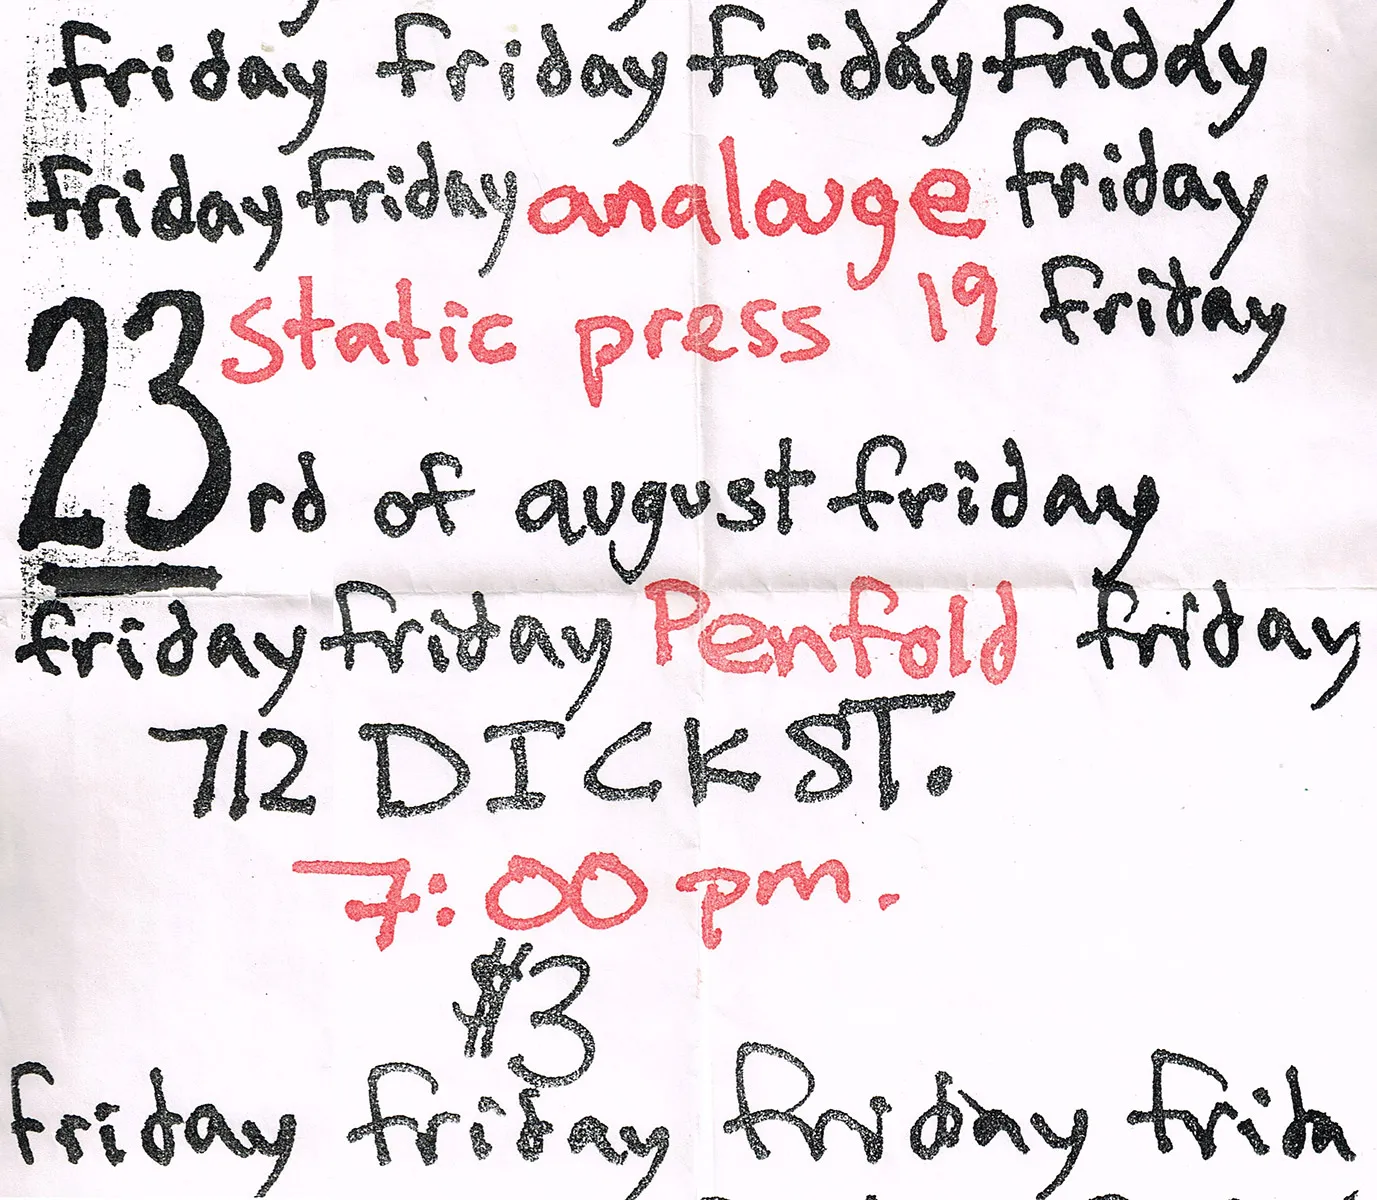 friday friday friday friday
friday friday analouge friday
static press 19 friday
23rd of august friday
friday friday Penfold friday
712 DICK ST.
7:00 pm.
$3
friday friday friday frida